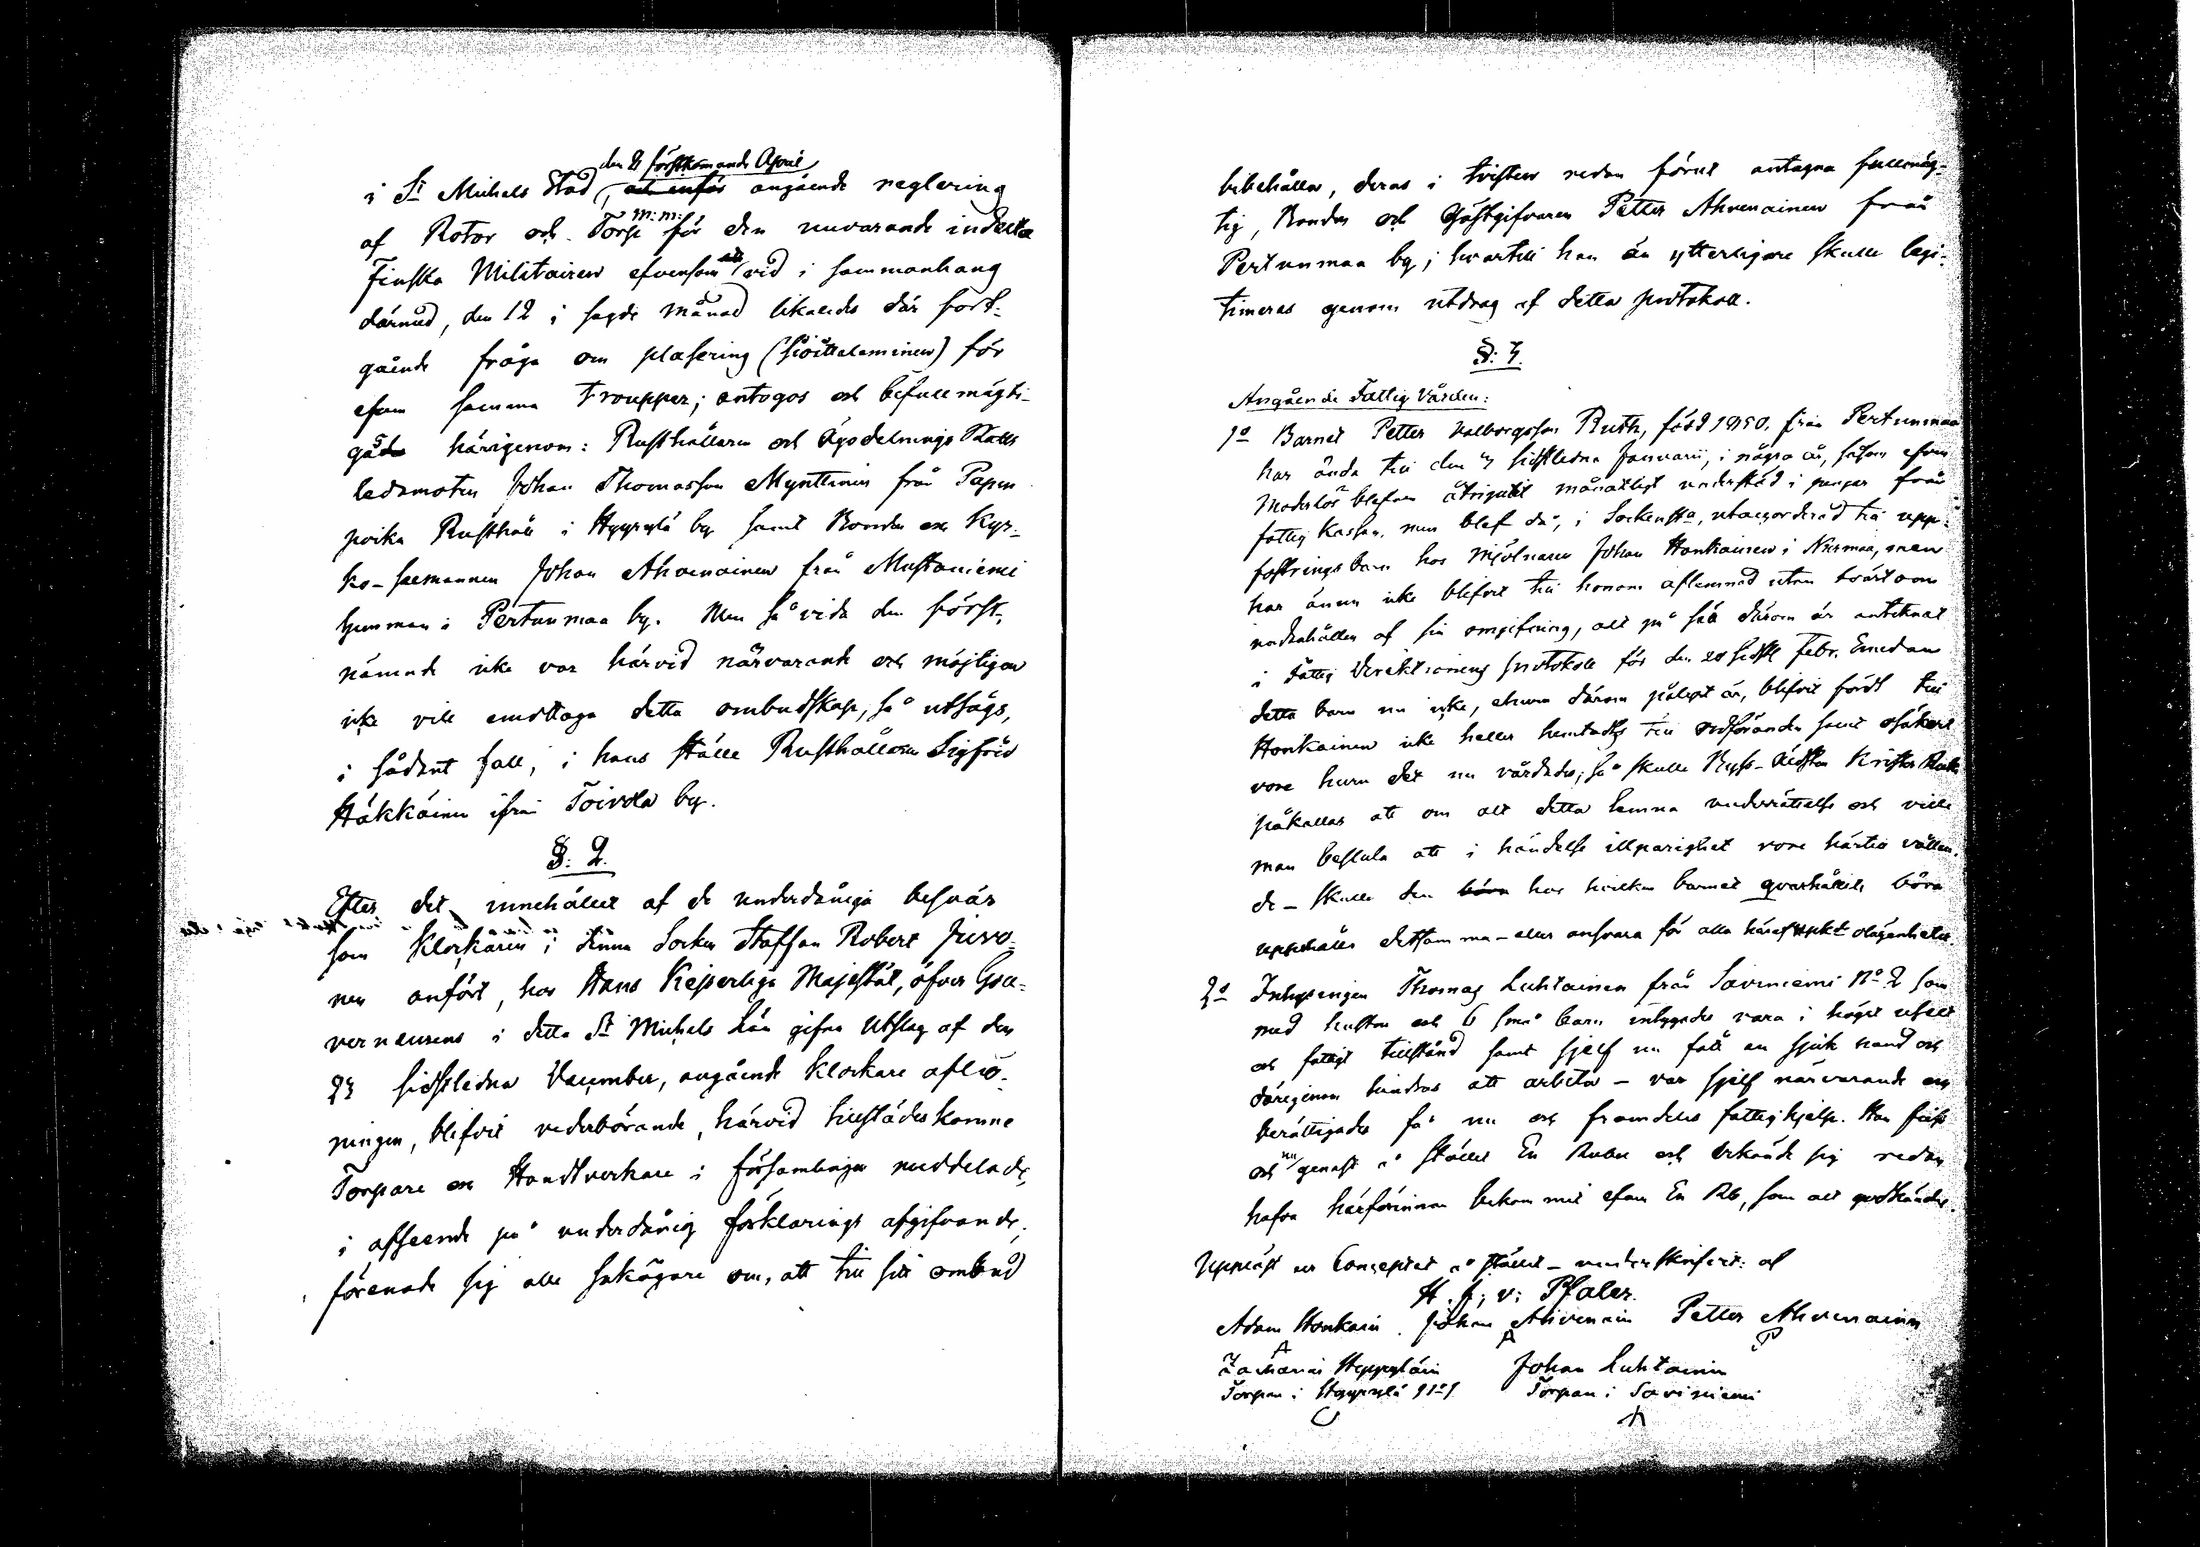 den 8 förstkomande April
i St Michels Stad, angående reglering
m: m:
af Rotor och Torp för den nuvarande indelta
Finska Militairen efvensom vid i sammanhang
därmed, den 12 i sagde månad likaledes där fort-
gående fråga om plasering (siöittelaminen) för
efven samma Troupper; antogos och befullmägti-
gades härigenom: Rusthållaren och Ägodelnings Rätts
ledamoten Johan Thomasson Mynttinen från Papin
poika Rusthåll i Hyyrylä by samt Bonden och Kyr-
ko-sexmannen Johan Ahvenainen från Mustaniemi
hemman i Pertunmaa by. Men så vida den först-
nämnde icke var härvid närvarande och möjligen
icke vill emottaga detta ombudskap, så utsågs,
i sådant fall, i hans ställe Rusthållaren Sigfrid
Häkkäinen ifrån Toivola by.
§: 2.
Efter det innehållet af de underdåniga besvär
som Klockaren i denna Socken Staffan Robert Juvo-
nen anfört, hos Hans Kejserliga Majestät, öfver Gou-
verneurens i detta St Michels Län gifna Utslag af den
23 sidstledna December, angående Klockare aflö-
ningen, blifvit vederbörande, härvid tillstädeskomne
Torpare och Handtverkare i församlingen meddelade,
i afseende på underdånig förklarings afgifvande,
förenade sig alle sakägare om, att till sitt ombud
bibehålla, deras i tvisten redan förut antagna fullmäg-
tig, Bonden och Gästgifvaren Petter Ahvenainen från
Pertunmaa by; hvartill han än ytterligare skulle legi-
timeras genom utdrag af detta protokoll.
§: 3.
Angående Fattig Vården:
1o Barnet Petter Valborgsson Ruth, född 1850. från Pertunmaa
har ända till den sidstledna Januari, i några år, såsom efven
Moderlös blefven åtnjutit månatligt understöd i pengar från
fattig Kassan. men blef då, i Sockensta, utacorderad till upp-
fostrings barn hos Mjölnaren Johan Honkainen i Nurmaa, men
har ännu icke blifvit till honom aflemnad utan tvärtom
undanhållen af sin omgifning, allt på sätt därom är antecknat
i Fattig Direktionens protokoll för den 20 sidstl Febr. Emedan
detta barn nu icke, ehuru därom pålyst är, blifvit fördt till
Honkainen icke heller hemtades till ordföranden samt osäkert
vore hurn det nu vårdades; så skulle Byss-Äldsten Krister Ruth
påkallas att om allt detta lemna underrättelse och ville
man besluta att i händelse illparighet vore härtill vållan-
de - skulle den hos hvilken barnet qvarhållits böra
uppehålla detsamma - eller ansvara för alla häraf olägenheter.
2o Inhysingen Thomas Luhtainen från Saviniemi No 2 som
med hustru och 6 små barn intygades vara i högst uselt
och fattigt tillstånd samt sjelf nu fått en sjuk hand och
därigenom hindras att arbeta - var sjelf närvarande och
berättigades få nu och framdeles fattighjelp. Han fick
och nu genast å stället En Rubel och erkände sig redan
hafva härförinnan bekommit efven En Rb, som allt godkändes.
Uppläst ur Conceptet å stället - underskrifvet: af
H. J. v: Pfaler.
Adam Honkain. Johan Ahvenain Petter Ahvenainen
A A P
Zacharias Hyyryläin Johan Luhtainen
Torpare i Hyyrylä No 1 Torpare i Saviniemi